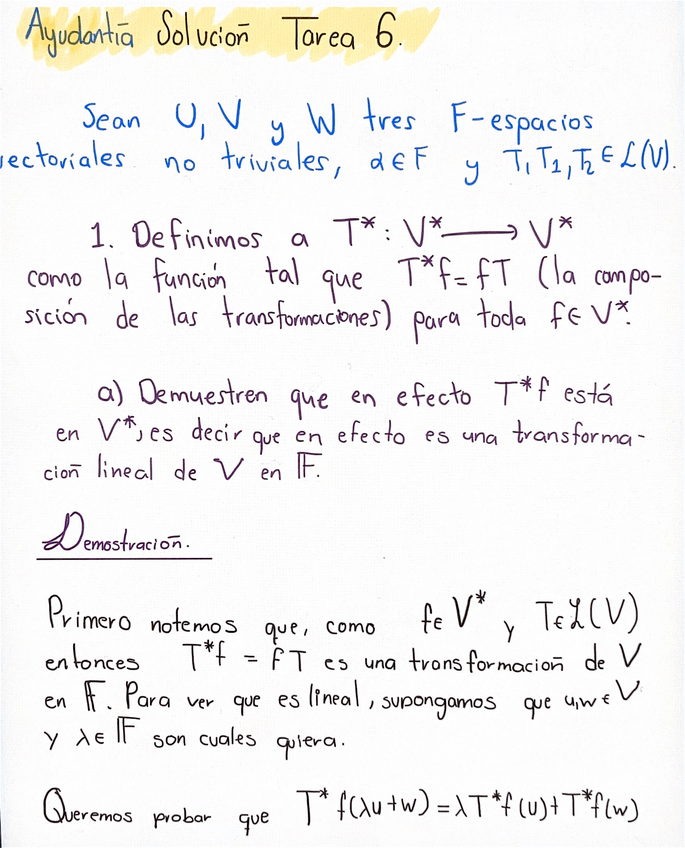 Ayudantía Solución Tarea 6.
Sean U, V y W tres F-espacios
vectoriales no triviales, α ∈ F y T, T1, T2 ∈ L(V).
1. Definimos a T* : V* → V*
como la función tal que T*f = fT (la compo-
sición de las transformaciones) para toda f ∈ V*.
a) Demuestren que en efecto T*f está
en V*, es decir que en efecto es una transforma-
ción lineal de V en F.
Demostración.
Primero notemos que, como f ∈ V* y T ∈ L(V)
entonces T*f = fT es una transformación de V
en F. Para ver que es lineal, supongamos que u, w ∈ V
y λ ∈ F son cuales quiera.
Queremos probar que T*f(λu+w) = λT*f(u) + T*f(w)